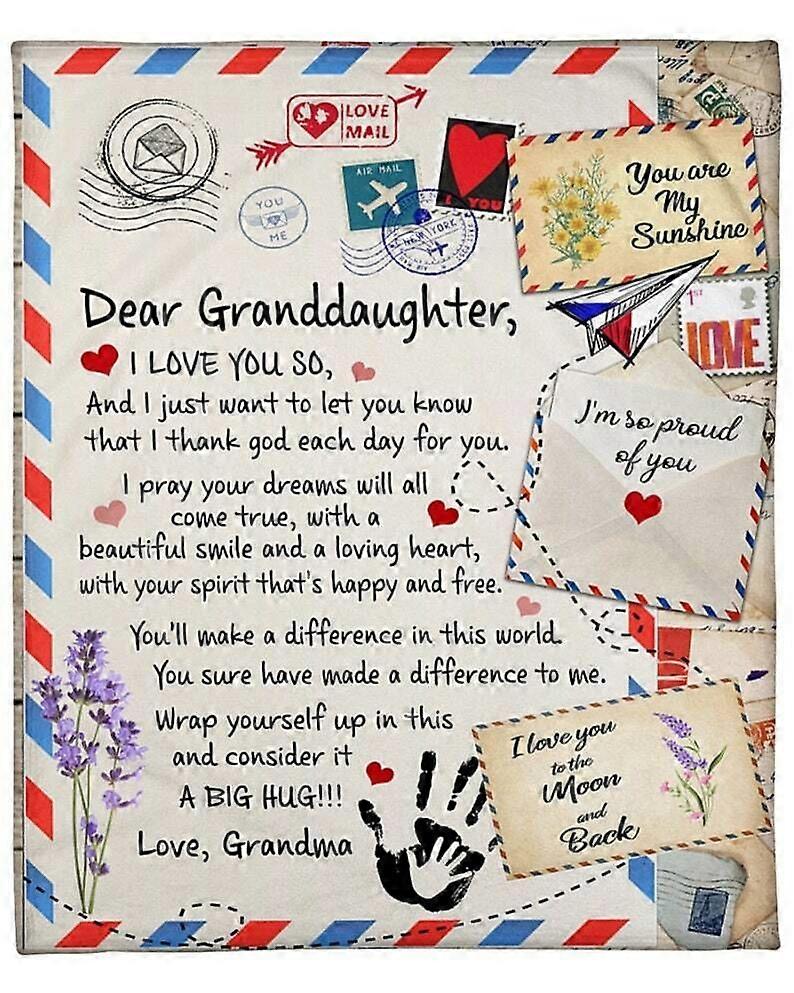 LOVE
MAIL
AIR MAIL
YOU
ME
NEW YORK
I YOU
You are
My
Sunshine
1ST
LOVE
Dear Granddaughter,
I LOVE YOU SO,
And I just want to let you know
that I thank god each day for you.
I pray your dreams will all
come true, with a
beautiful smile and a loving heart,
with your spirit that's happy and free.
You'll make a difference in this world.
You sure have made a difference to me.
Wrap yourself up in this
and consider it
A BIG HUG!!!
Love, Grandma
I'm so proud
of you
I love you
to the
Moon
and
Back